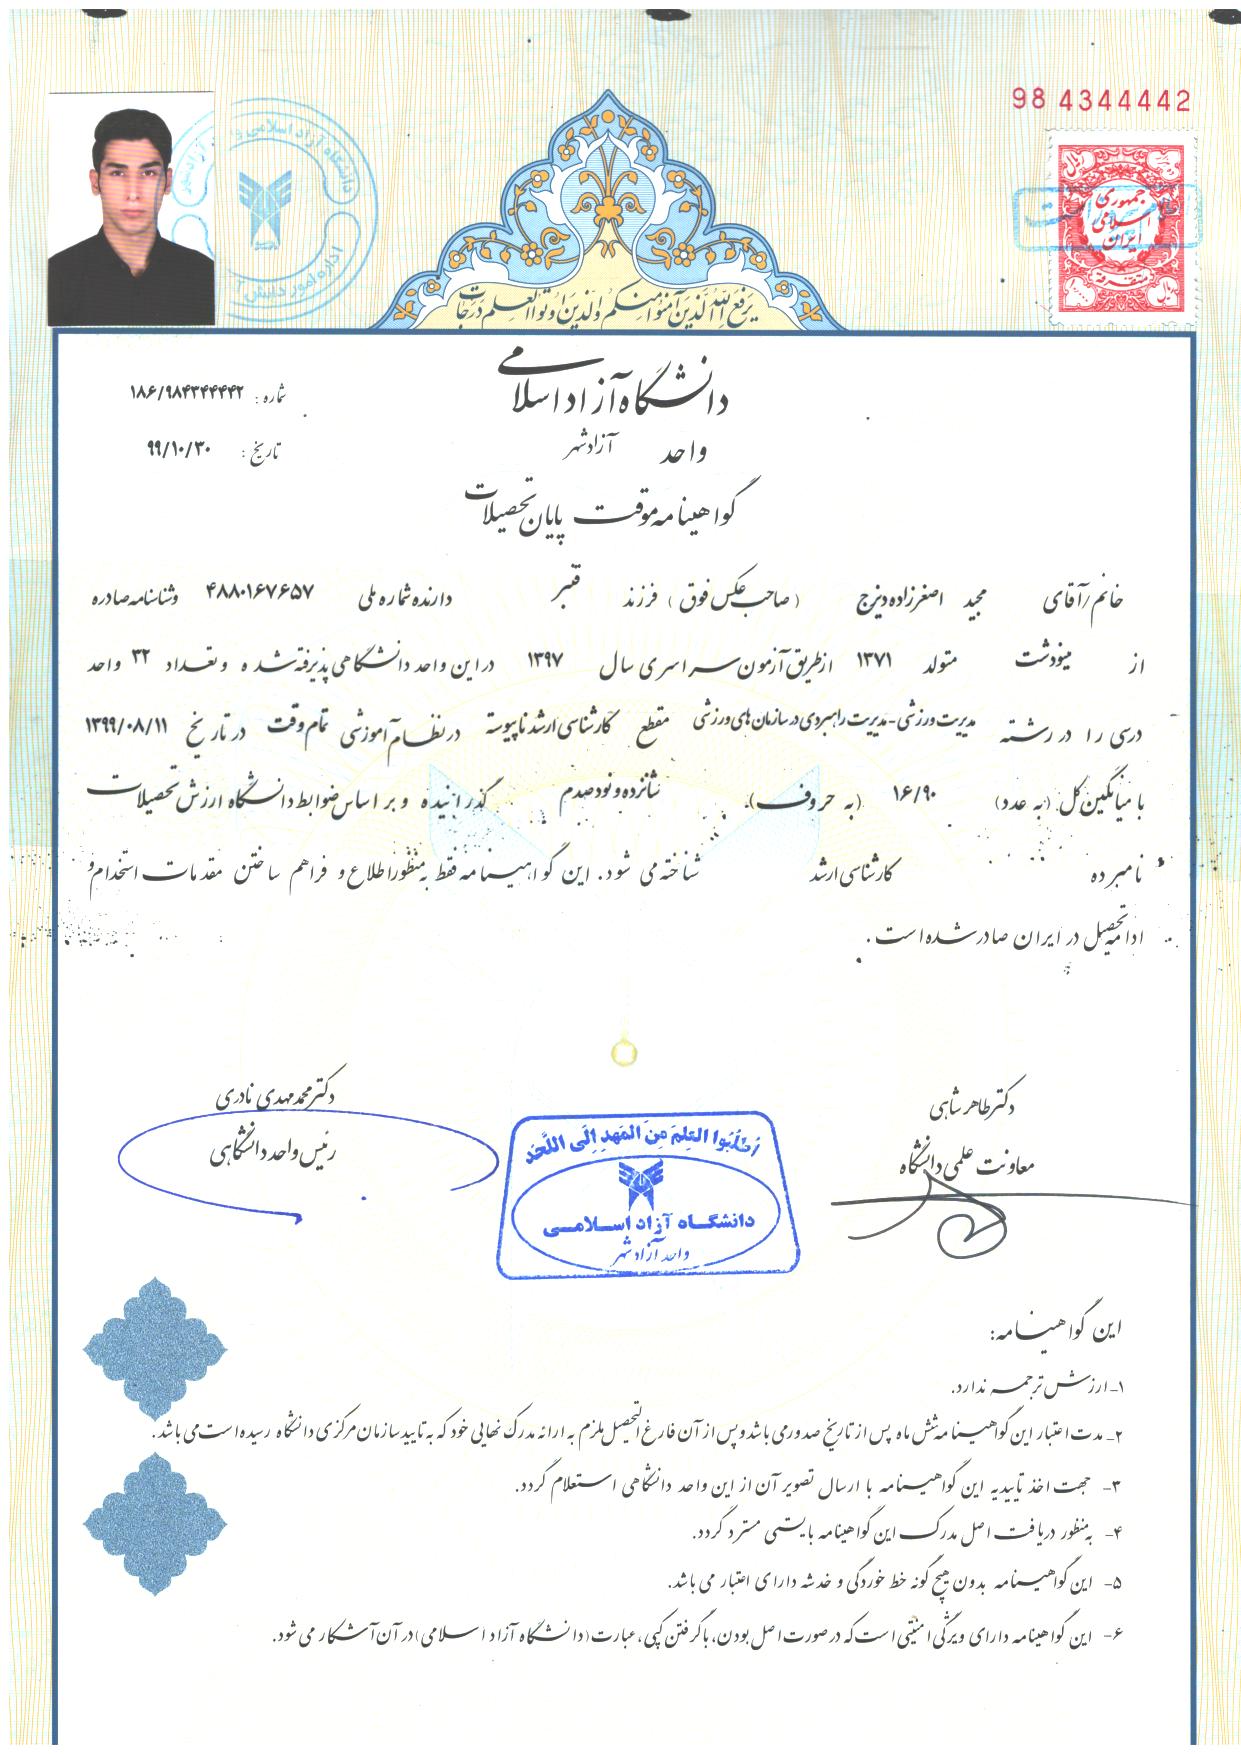 98 4344442
دانشگاه آزاد اسلامی
اداره امور دانش
ریال
جمهوری
اسلامی
ایران
متفرقه
ریال
یرفع الله الذین آمنوا منکم والذین اوتوا العلم درجات
دانشگاه آزاد اسلامی
شماره : ۱۸۶/۹۸۴۳۴۴۴۴۲
واحد آزادشهر
تاریخ : ۹۹/۱۰/۳۰
گواهینامه موقت پایان تحصیلات
خانم/آقای مجید اصغرزاده دیزج (صاحب عکس فوق) فرزند قنبر دارنده شماره ملی ۴۸۸۰۱۶۷۶۵۷ وشناسنامه صادره
از مینودشت متولد ۱۳۷۱ ازطریق آزمون سراسری سال ۱۳۹۷ دراین واحد دانشگاهی پذیرفته شده وتعداد ۳۲ واحد
درسی را در رشته مدیریت ورزشی-مدیریت راهبردی درسازمان های ورزشی مقطع کارشناسی ارشد ناپیوسته درنظام آموزشی تمام وقت در تاریخ ۱۳۹۹/۰۸/۱۱
با میانگین کل (به عدد) ۱۶/۹۰ (به حروف) شانزده ونودصدم گذرانیده وبر اساس ضوابط دانشگاه ارزش تحصیلات
نامبرده کارشناسی ارشد شناخته می شود. این گواهینامه فقط به منظور اطلاع و فراهم ساختن مقدمات استخدام و
ادامه تحصیل در ایران صادر شده است .
دکتر طاهر شاهی
معاونت علمی دانشگاه
دکتر محمد مهدی نادری
رئیس واحد دانشگاهی
اُطلُبوا العِلمَ مِنَ المَهدِ اِلَی اللَّحَد
دانشگاه آزاد اسلامی
واحد آزادشهر
این گواهینامه:
۱- ارزش ترجمه ندارد.
۲- مدت اعتبار این گواهینامه شش ماه پس از تاریخ صدور می باشد و پس از آن فارغ التحصیل ملزم به ارائه مدرک نهایی خود که به تایید سازمان مرکزی دانشگاه رسیده است می باشد.
۳- جهت اخذ تاییدیه این گواهینامه با ارسال تصویر آن از این واحد دانشگاهی استعلام گردد.
۴- به منظور دریافت اصل مدرک این گواهینامه بایستی مسترد گردد.
۵- این گواهینامه بدون هیچ گونه خط خوردگی و خدشه دارای اعتبار می باشد.
۶- این گواهینامه دارای ویژگی امنیتی است که درصورت اصل بودن، باگرفتن کپی، عبارت (دانشگاه آزاد اسلامی) در آن آشکار می شود.